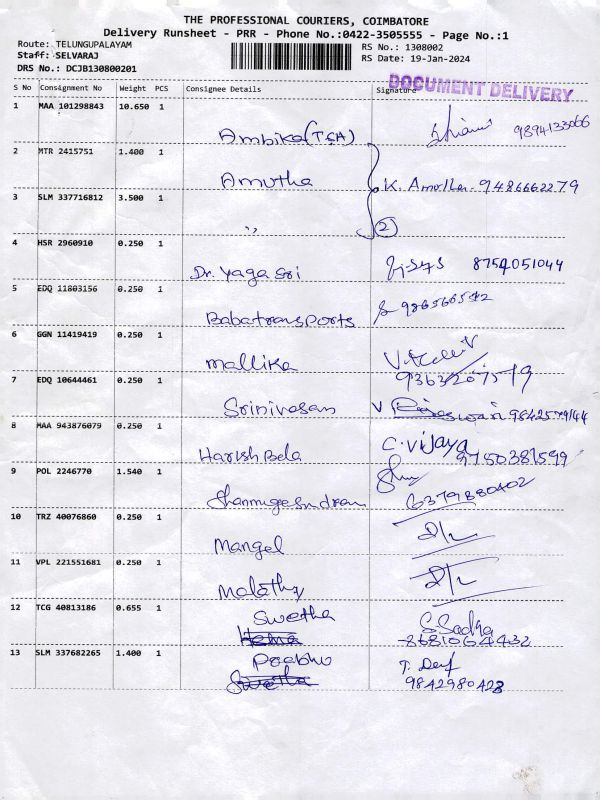 THE PROFESSIONAL COURIERS, COIMBATORE
Delivery Runsheet - PRR - Phone No.:0422-3505555 - Page No.:1
Route: TELUNGUPALAYAM
RS No.: 1308002
Staff: SELVARAJ
RS Date: 19-Jan-2024
DRS No.: DCJB130800201
DOCUMENT DELIVERY
S No Consignment No Weight PCS Consignee Details Signature
1 MAA 101298843 10.650 1
Ambika (TSA) 9894133066
2 MTR 2415751 1.400 1
Amutha K. Amutha. 9486662279
3 SLM 337716812 3.500 1
,, 2
4 HSR 2960910 0.250 1
Dr. Yaga Sri 8754051044
5 EDQ 11803156 0.250 1
Babatransports
6 GGN 11419419 0.250 1
Mallika 9363207519
7 EDQ 10644461 0.250 1
Srinivasan V 9842579144
8 MAA 943876079 0.250 1
Harish Bela C. Vijaya 9750381599
9 POL 2246770 1.540 1
6379880402
10 TRZ 40076860 0.250 1
Mangel D/L
11 VPL 221551681 0.250 1
Malathy D/L
12 TCG 40813186 0.655 1
Swetha S. Sadha
Hema 8681064432
13 SLM 337682265 1.400 1
Prabhu T.
Swetha 9842980428